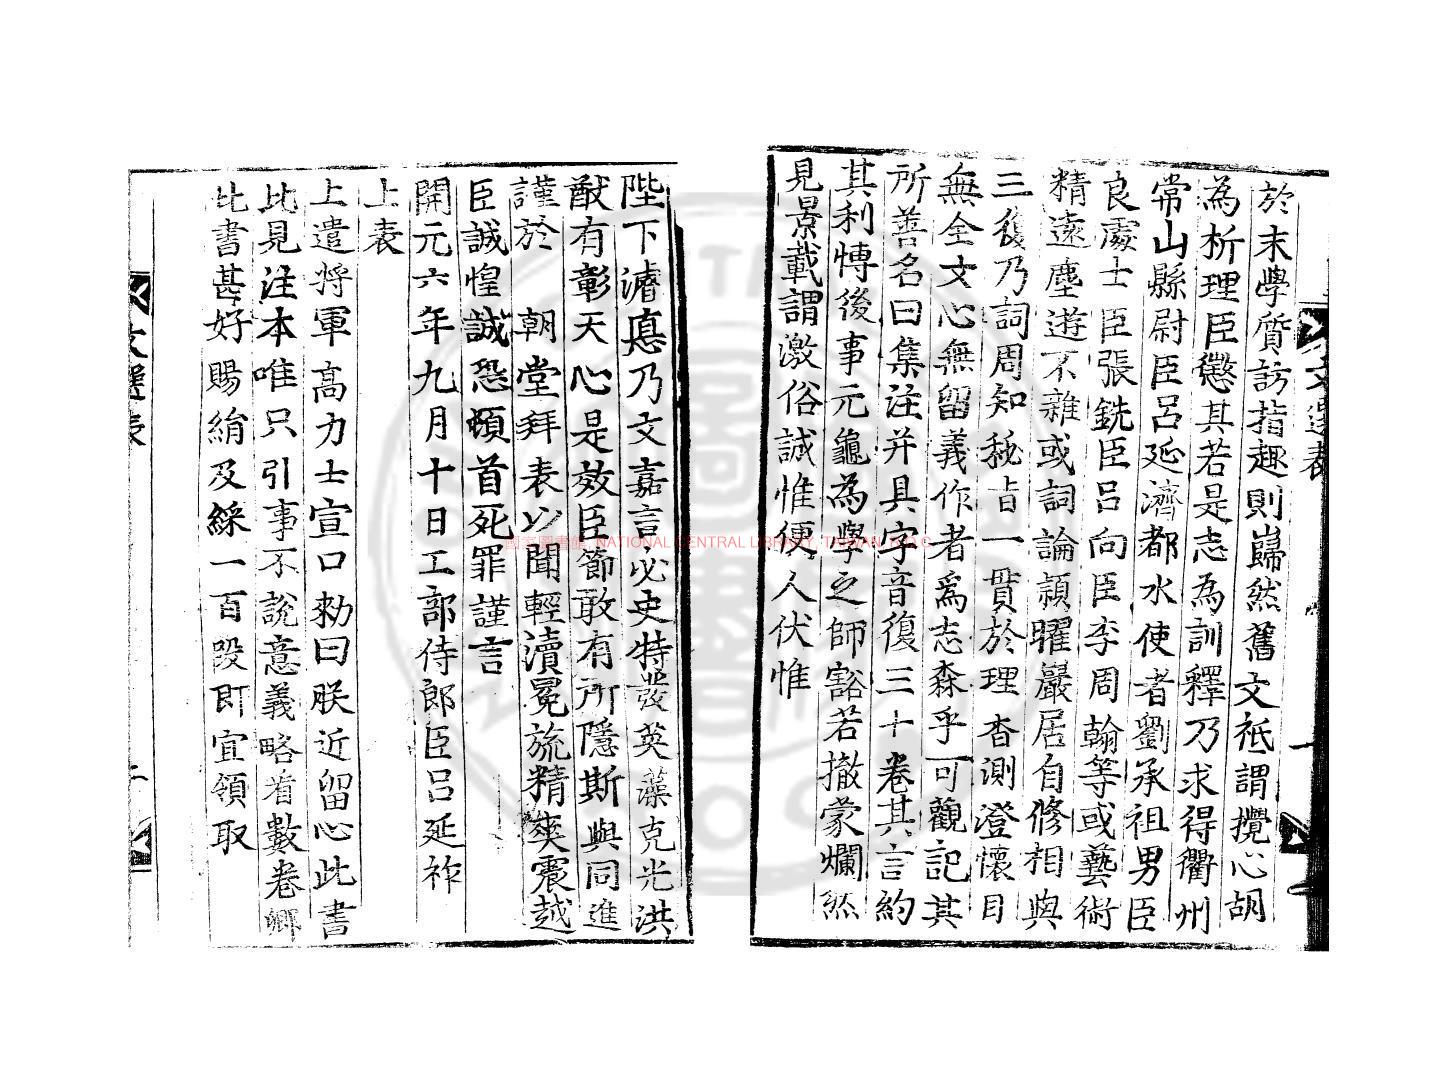 於末學質訪指趣則巋然舊文祇謂攪心胡
為析理臣懲其若是志為訓釋乃求得衢州
常山縣尉臣呂延濟都水使者劉承祖男臣
良處士臣張銑臣呂向臣李周翰等或藝術
精遠塵遊不雜或詞論穎曜巖居自修相與
三復乃詞周知秘旨一貫於理杳測澄懷目
無全文心無留義作者為志森乎可觀記其
所善名曰集注并具字音復三十卷其言約
其利博後事元龜為學之師豁若撤蒙爛然
見景載謂激俗誠惟便人伏惟
陛下濬悳乃文嘉言必史特發英藻克光洪
猷有彰天心是效臣節敢有所隱斯與同進
謹於 朝堂拜表以聞輕瀆冕旒精爽震越
臣誠惶誠恐頓首死罪謹言
開元六年九月十日工部侍郎臣呂延祚
上表
上遣將軍高力士宣口勑曰朕近留心此書
比見注本唯只引事不說意義略看數卷卿
此書甚好賜絹及綵一百段即宜領取
文選表
國家圖書館 NATIONAL CENTRAL LIBRARY, TAIWAN, R.O.C